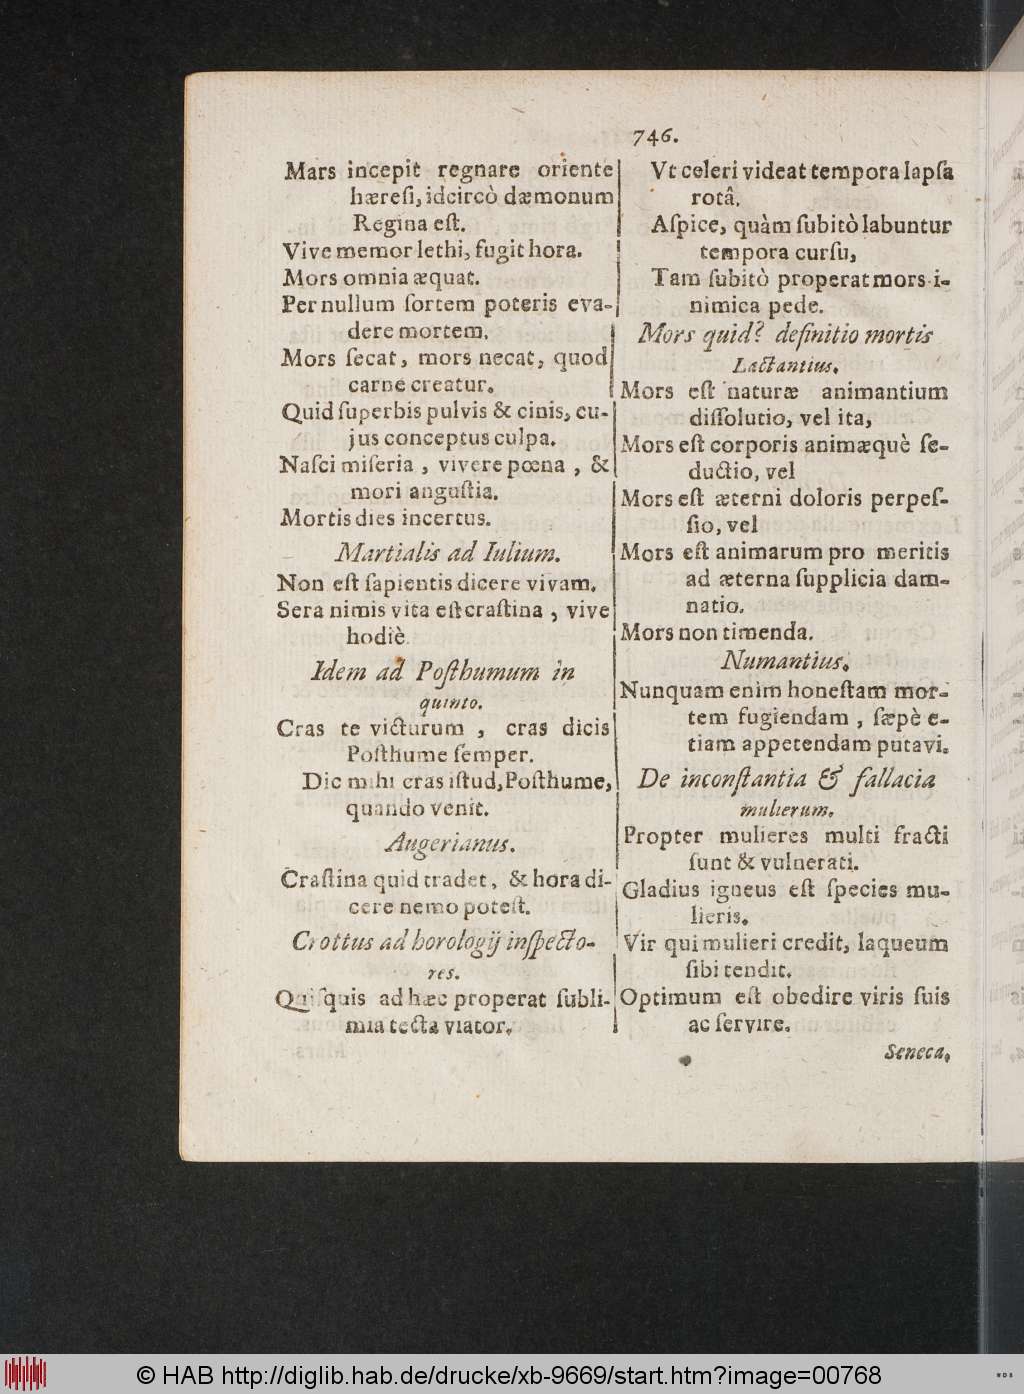 746.
Mars incepit regnare oriente
hæreſi, idcircò dæmonum
Regina eſt.
Vive memor lethi, fugit hora.
Mors omnia æquat.
Per nullum ſortem poteris eva-
dere mortem.
Mors ſecat, mors necat, quod
carne creatur.
Quid ſuperbis pulvis & cinis, cu-
jus conceptus culpa.
Naſci miſeria, vivere pœna, &
mori anguſtia.
Mortis dies incertus.
Martialis ad Iulium.
Non eſt ſapientis dicere vivam.
Sera nimis vita eſt craſtina, vive
hodiè.
Idem ad Poſthumum in
quinto.
Cras te victurum, cras dicis
Poſthume ſemper.
Dic mihi cras iſtud, Poſthume,
quando venit.
Augerianus.
Craſtina quid tradet, & hora di-
cere nemo poteſt.
Crottus ad horologij inſpecto-
res.
Quiſquis ad hæc properat ſubli-
mia tecta viator.
Vt celeri videat tempora lapſa
rotâ.
Aſpice, quàm ſubitò labuntur
tempora curſu,
Tam ſubitò properat mors i-
nimica pede.
Mors quid? definitio mortis
Lactantius.
Mors eſt naturæ animantium
diſſolutio, vel ita,
Mors eſt corporis animæquè ſe-
ductio, vel
Mors eſt æterni doloris perpeſ-
ſio, vel
Mors eſt animarum pro meritis
ad æterna ſupplicia dam-
natio.
Mors non timenda.
Numantius.
Nunquam enim honeſtam mor-
tem fugiendam, ſæpè e-
tiam appetendam putavi.
De inconſtantia & fallacia
mulierum.
Propter mulieres multi fracti
ſunt & vulnerati.
Gladius igneus eſt ſpecies mu-
lieris.
Vir qui mulieri credit, laqueum
ſibi tendit.
Optimum eſt obedire viris ſuis
ac ſervire.
Seneca,
© HAB http://diglib.hab.de/drucke/xb-9669/start.htm?image=00768